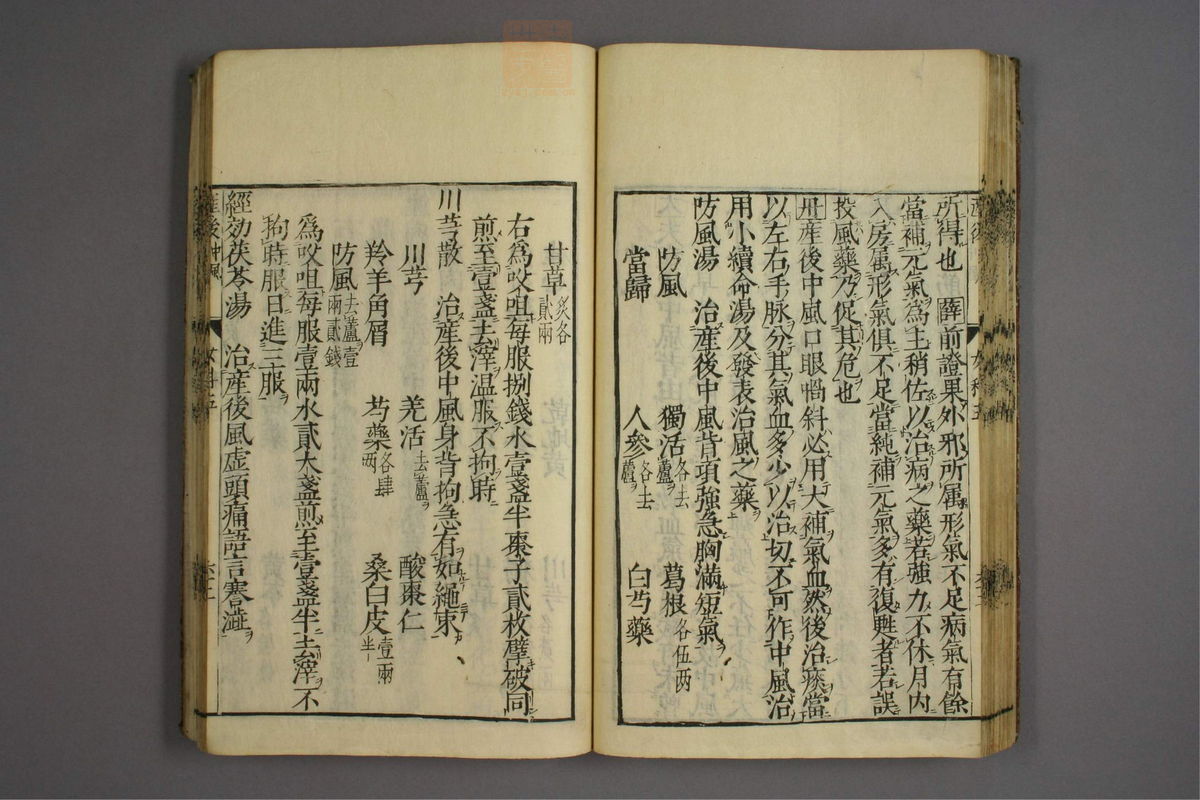 所得也 薛前證果外邪所属形氣不足病氣有餘
當補元氣為主稍佐以治病之藥若強力不休月内
入房属形氣俱不足當純補元氣多有復甦者若誤
投風藥乃促其危也
丹産後中風口眼喎斜必用大補氣血然後治痰當
以左右手脉分其氣血多少以治切不可作中風治
用小續命湯及發表治風之藥
防風湯 治産後中風背項強急胸滿短氣
防風 獨活各去蘆 葛根各伍两
當歸 人參各去蘆 白芍藥
甘草炙各貳兩
右為㕮咀每服捌錢水壹盞半棗子貳枚擘破同
煎至壹盞去滓温服不拘時
川芎散 治産後中風身背拘急有如繩束
川芎 羌活去蘆 酸棗仁
羚羊角屑 芍藥各肆两 桑白皮壹兩半
防風去蘆壹兩貳錢
為㕮咀每服壹兩水貳大盞煎至壹盞半去滓不
拘時服日進三服
經効茯苓湯 治産後風虚頭痛語言謇澁
産後中風 女科五